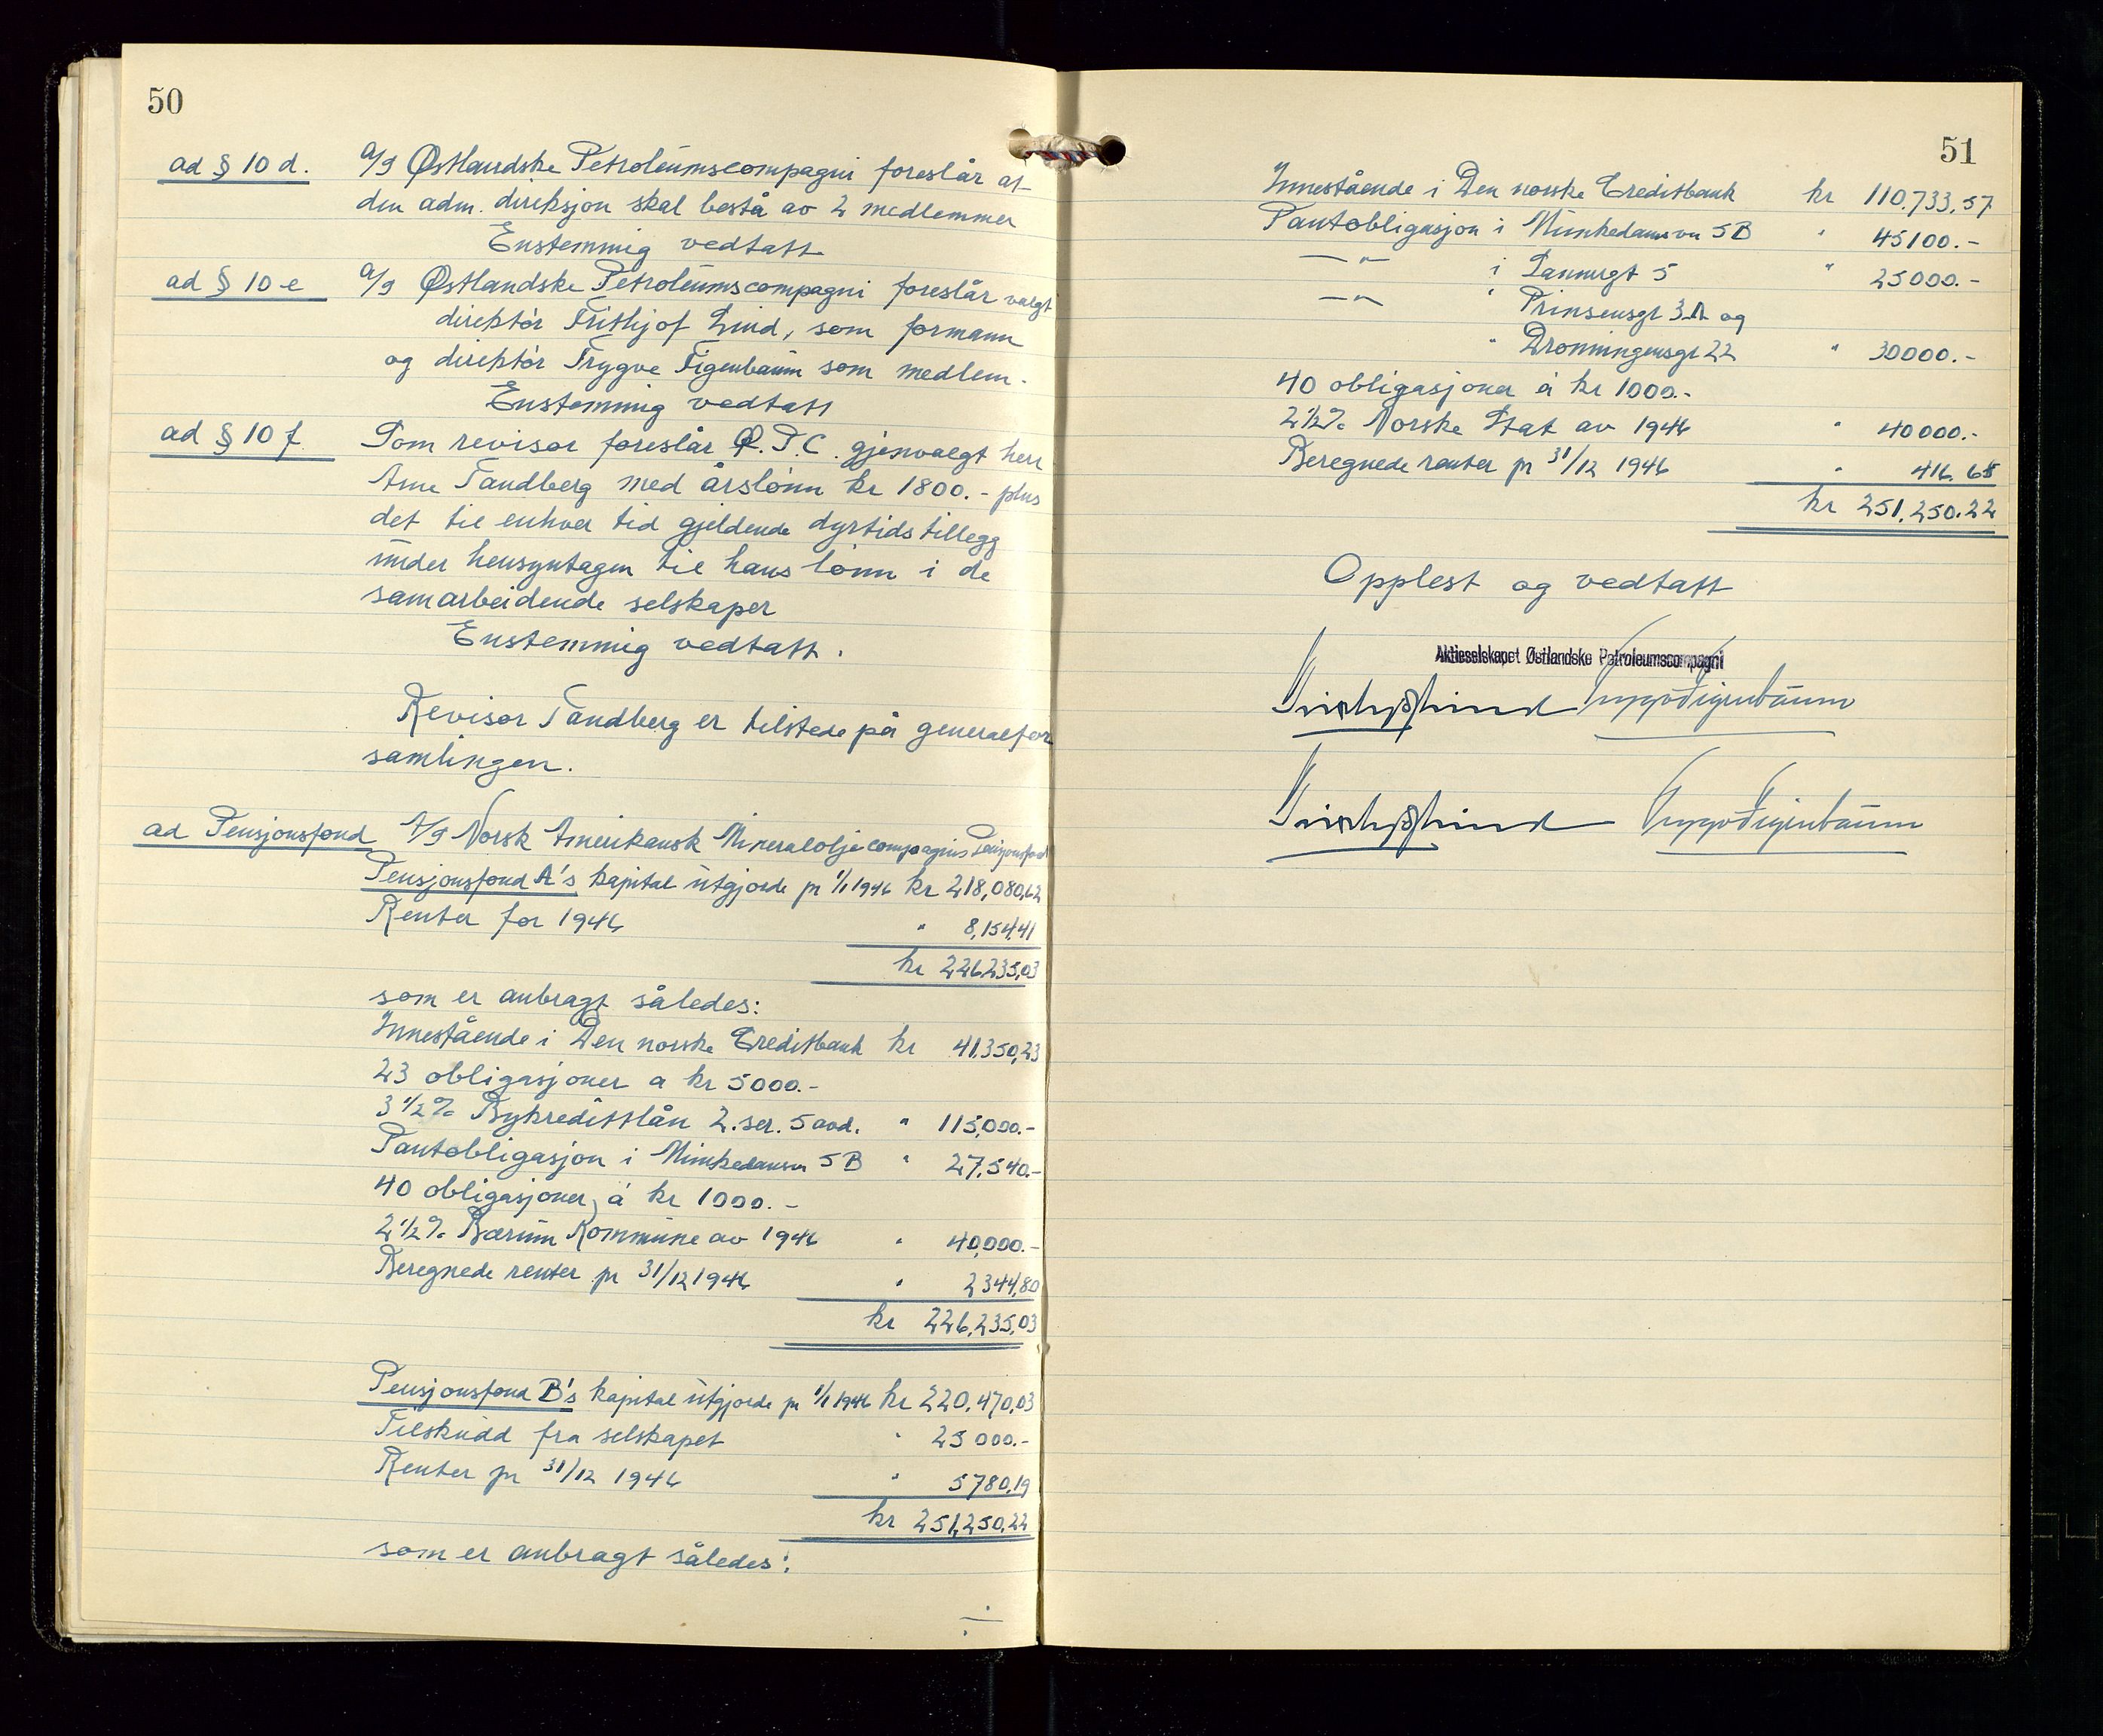 50
ad § 10 d. A/S Østlandske Petroleumscompagni foreslår at
den adm. direksjon skal bestå av 2 medlemmer
Enstemmig vedtatt
ad § 10 e A/S Østlandske Petroleumscompagni foreslår valgt
direktør Frithjof Lind, som formann
og direktør Trygve Figenbaum som medlem.
Enstemmig vedtatt
ad § 10 f Som revisor foreslår Ø.P.C. gjenvalgt herr
Arne Tandberg med årslønn kr 1800.- plus
det til enhver tid gjeldende dyrtidstillegg
under hensyntagen til hans lønn i de
samarbeidende selskaper
Enstemmig vedtatt.
Revisor Tandberg er tilstede på generalfor
samlingen.
ad Pensjonsfond A/S Norsk Amerikansk Mineraloljecompagnis Pensjonsfond
Pensjonsfond A's kapital utgjorde pr 1/1 1946 kr 218,080,62
Renter for 1946 " 8,154,41
kr 226,235,03
som er anbragt således:
Innestående i Den norske Creditbank kr 41,350,23
23 obligasjoner a kr 5000.-
3 1/2% Bykredittlån 2. ser. 5 avd. " 115,000.-
Pantobligasjon i Munkedamsvn 5B " 27,540.-
40 obligasjoner á kr 1000.-
2 1/2% Bærum Kommune av 1946 " 40,000.-
Beregnede renter pr 31/12 1946 " 2344,80
kr 226,235,03
Pensjonsfond B's kapital utgjorde pr 1/1 1946 kr 220,470,03
Tilskudd fra selskapet " 25 000.-
Renter pr 31/12 1946 " 5780,19
kr 251,250,22
som er anbragt således:
51
Innestående i Den norske Creditbank kr 110.733,57
Pantobligasjon i Munkedamsvn 5B " 45100.-
—"— i 5 " 25000.-
—"— " Prinsensgt 3A og
" Dronningensgt 22 " 30000.-
40 obligasjoner á kr 1000.-
2 1/2% Norske Stat av 1946 " 40000.-
Beregnede renter pr 31/12 1946 " 416.65
kr 251,250.22
Opplest og vedtatt
Aktieselskapet Østlandske Petroleumscompagni
Frithjof Lind Trygve Figenbaum
Frithjof Lind Trygve Figenbaum